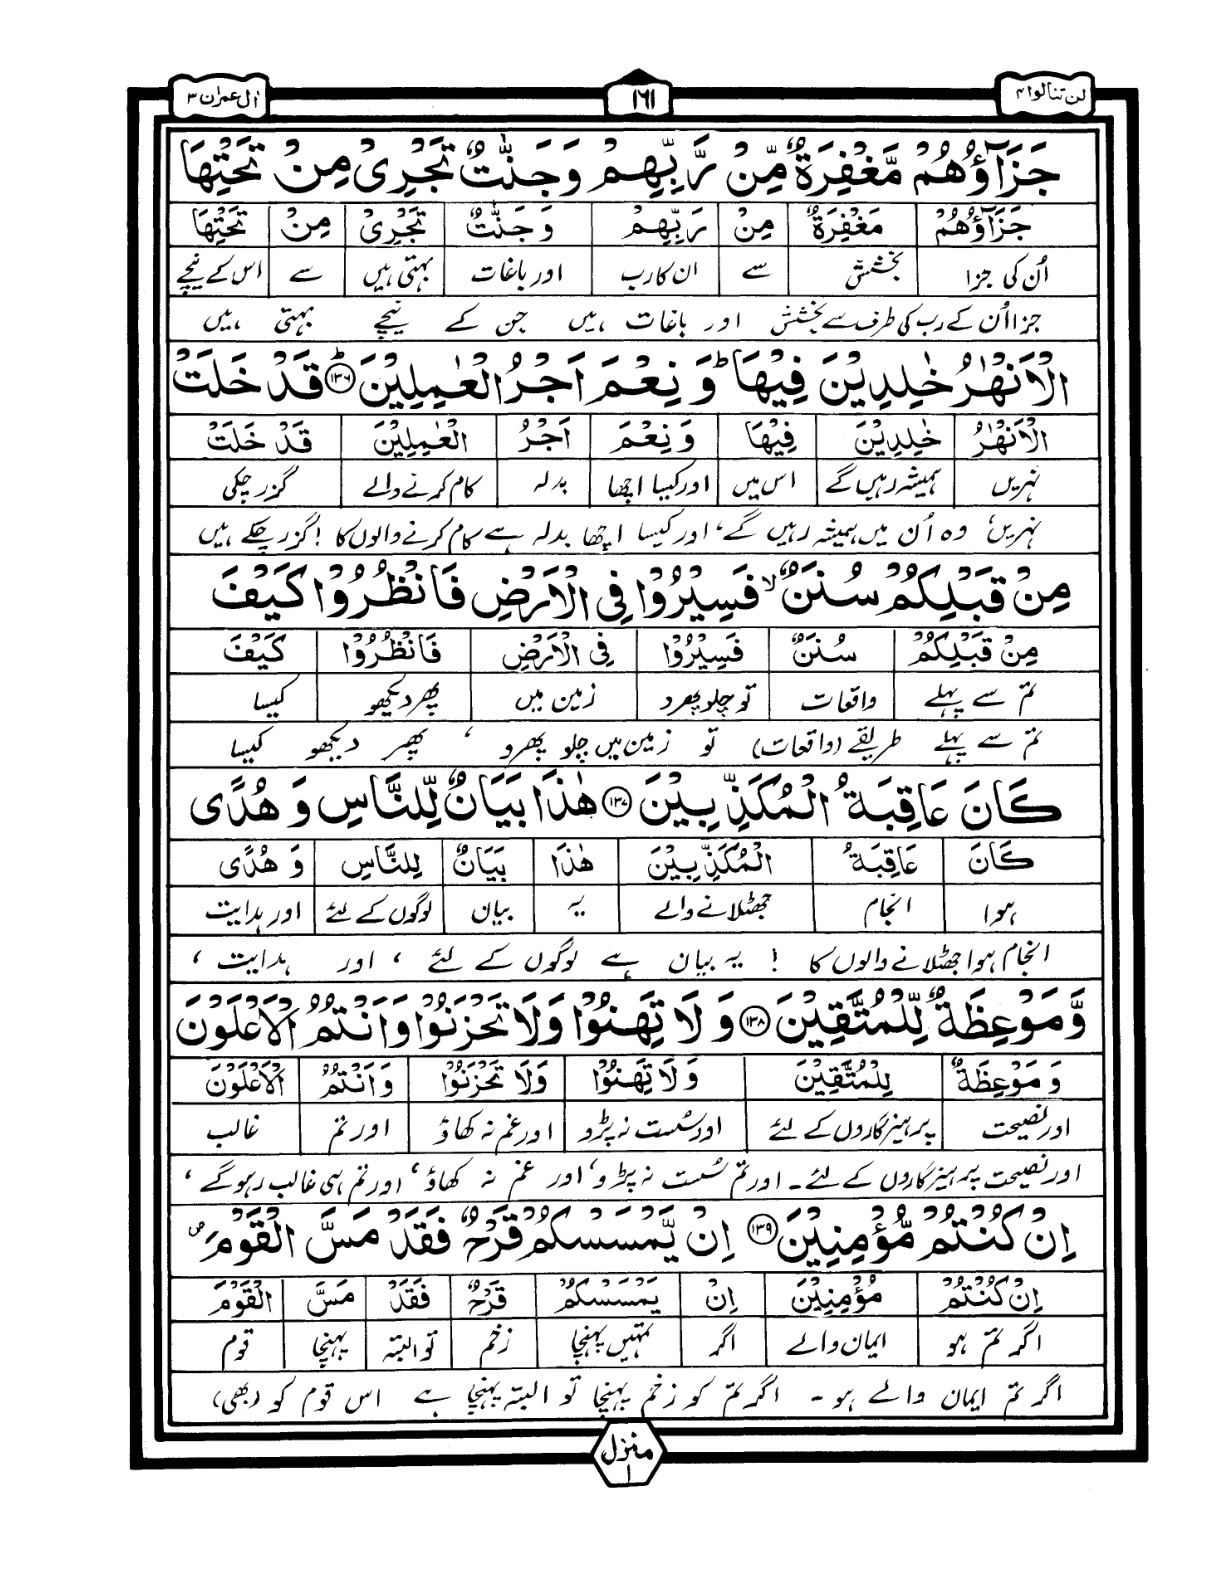 لن تنالوا ۴
۱۶۱
اٰل عمرٰن ۳
جَزَآؤُهُمْ مَّغْفِرَةٌ مِّنْ رَّبِّهِمْ وَ جَنّٰتٌ تَجْرِیْ مِنْ تَحْتِهَا
جَزَآؤُهُمْ مَغْفِرَةٌ مِنْ رَبِّهِمْ وَ جَنّٰتٌ تَجْرِیْ مِنْ تَحْتِهَا
اُن کی جزا بخشش سے ان کا رب اور باغات بہتی ہیں سے اس کے نیچے
جزا اُن کے رب کی طرف سے بخشش اور باغات ہیں جن کے نیچے بہتی ہیں
الْاَنْهٰرُ خٰلِدِیْنَ فِیْهَا ؕ وَ نِعْمَ اَجْرُ الْعٰمِلِیْنَ ؕ ۱۳۶ قَدْ خَلَتْ
الْاَنْهٰرُ خٰلِدِیْنَ فِیْهَا وَ نِعْمَ اَجْرُ الْعٰمِلِیْنَ قَدْ خَلَتْ
نہریں ہمیشہ رہیں گے اس میں اور کیسا اچھا بدلہ کام کرنے والے گزر چکی
نہریں، وہ اُن میں ہمیشہ رہیں گے، اور کیسا اچھا بدلہ ہے کام کرنے والوں کا ! گزر چکے ہیں
مِنْ قَبْلِكُمْ سُنَنٌ ۙ فَسِیْرُوْا فِی الْاَرْضِ فَانْظُرُوْا كَیْفَ
مِنْ قَبْلِكُمْ سُنَنٌ فَسِیْرُوْا فِی الْاَرْضِ فَانْظُرُوْا كَیْفَ
تم سے پہلے واقعات تو چلو پھرو زمین میں پھر دیکھو کیسا
تم سے پہلے طریقے (واقعات) تو زمین میں چلو پھرو ، پھر دیکھو کیسا
كَانَ عَاقِبَةُ الْمُكَذِّبِیْنَ ۱۳۷ هٰذَا بَیَانٌ لِّلنَّاسِ وَ هُدًی
كَانَ عَاقِبَةُ الْمُكَذِّبِیْنَ هٰذَا بَیَانٌ لِلنَّاسِ وَ هُدًی
ہوا انجام جھٹلانے والے یہ بیان لوگوں کے لئے اور ہدایت
انجام ہوا جھٹلانے والوں کا ! یہ بیان ہے لوگوں کے لئے ، اور ہدایت ،
وَّ مَوْعِظَةٌ لِّلْمُتَّقِیْنَ ۱۳۸ وَ لَا تَهِنُوْا وَلَا تَحْزَنُوْا وَاَنْتُمُ الْاَعْلَوْنَ
وَ مَوْعِظَةٌ لِلْمُتَّقِیْنَ وَ لَا تَهِنُوْا وَلَا تَحْزَنُوْا وَ اَنْتُمُ الْاَعْلَوْنَ
اور نصیحت پرہیزگاروں کے لئے اور سُست نہ پڑو اور غم نہ کھاؤ اور تم غالب
اور نصیحت پرہیزگاروں کے لئے۔ اور تم سُست نہ پڑو، اور غم نہ کھاؤ، اور تم ہی غالب رہو گے،
اِنْ كُنْتُمْ مُّؤْمِنِیْنَ ۱۳۹ اِنْ یَّمْسَسْكُمْ قَرْحٌ فَقَدْ مَسَّ الْقَوْمَ ص
اِنْ كُنْتُمْ مُؤْمِنِیْنَ اِنْ یَمْسَسْكُمْ قَرْحٌ فَقَدْ مَسَّ الْقَوْمَ
اگر تم ہو ایمان والے اگر تمہیں پہنچا زخم تو البتہ پہنچا قوم
اگر تم ایمان والے ہو۔ اگر تم کو زخم پہنچا تو البتہ پہنچا ہے اس قوم کو (بھی)
منزل ۱